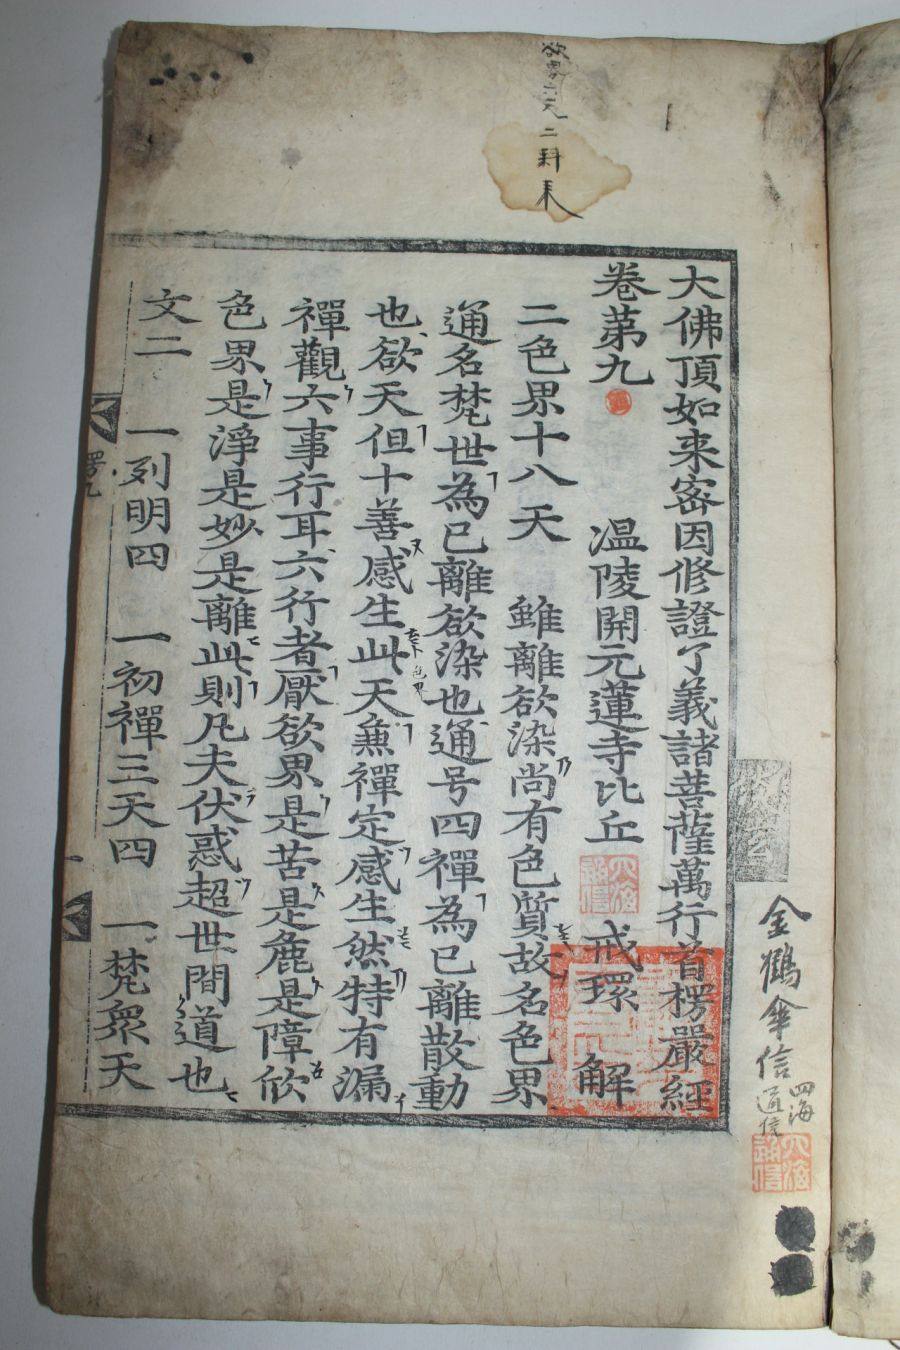 大佛頂如来宻因修證了義諸菩薩萬行首楞嚴經
卷苐九 温陵開元蓮寺比丘 戒環 解
二色界十八天 雖離欲染尚有色質故名色界
通名梵世為已離欲染也通号四禪為已離散動
也欲天但十善感生此天兼禪定感生然特有漏
禪觀六事行耳六行者厭欲界是苦是麁是障欣
色界是淨是妙是離此則凡夫伏惑超世間道也
文二 一列明四 一初禪三天四 一梵衆天
楞九
欲界六天二科来
金鶴傘信
四海
道信